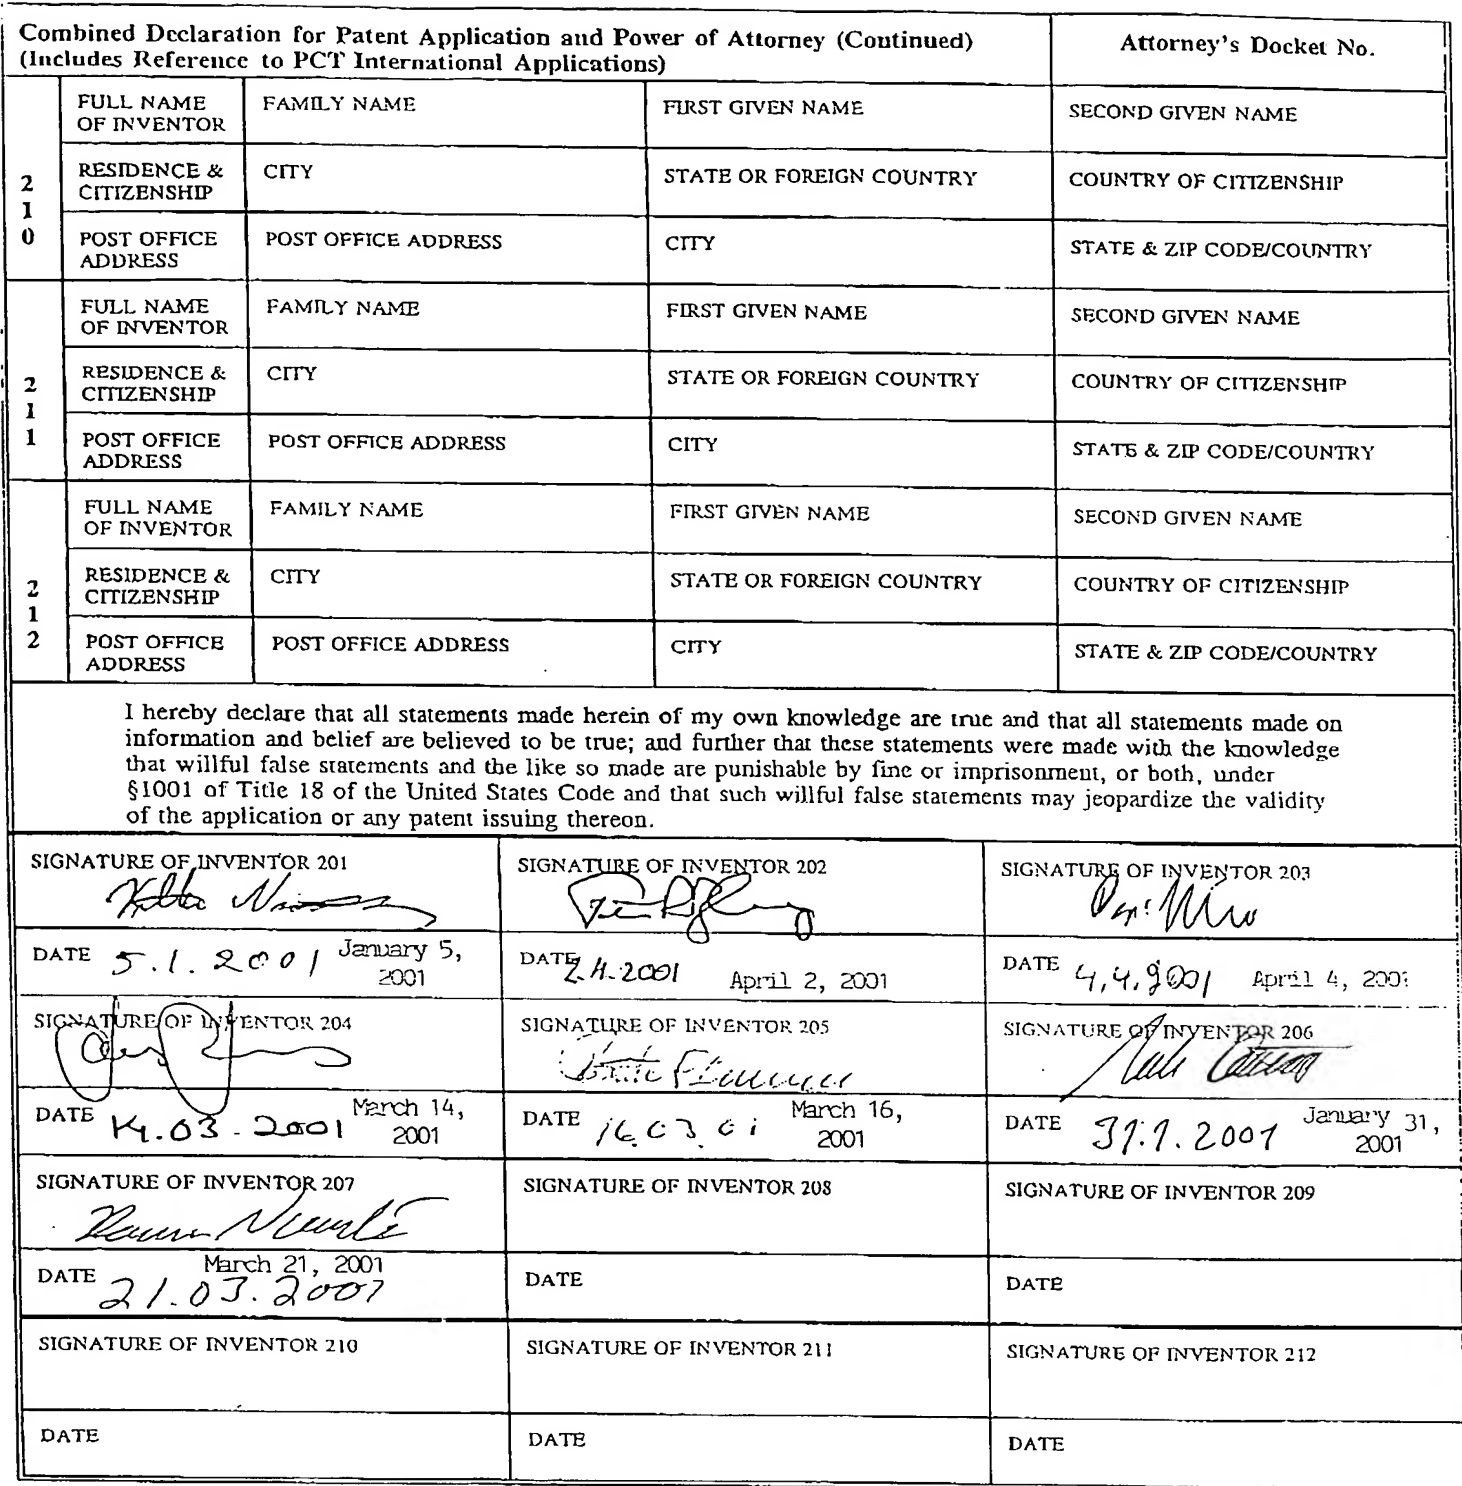 Combined Declaration for Patent Application and Power of Attorney (Continued)
(Includes Reference to PCT International Applications)
Attorney's Docket No.
210
FULL NAME OF INVENTOR
FAMILY NAME
FIRST GIVEN NAME
SECOND GIVEN NAME
RESIDENCE & CITIZENSHIP
CITY
STATE OR FOREIGN COUNTRY
COUNTRY OF CITIZENSHIP
POST OFFICE ADDRESS
POST OFFICE ADDRESS
CITY
STATE & ZIP CODE/COUNTRY
211
FULL NAME OF INVENTOR
FAMILY NAME
FIRST GIVEN NAME
SECOND GIVEN NAME
RESIDENCE & CITIZENSHIP
CITY
STATE OR FOREIGN COUNTRY
COUNTRY OF CITIZENSHIP
POST OFFICE ADDRESS
POST OFFICE ADDRESS
CITY
STATE & ZIP CODE/COUNTRY
212
FULL NAME OF INVENTOR
FAMILY NAME
FIRST GIVEN NAME
SECOND GIVEN NAME
RESIDENCE & CITIZENSHIP
CITY
STATE OR FOREIGN COUNTRY
COUNTRY OF CITIZENSHIP
POST OFFICE ADDRESS
POST OFFICE ADDRESS
CITY
STATE & ZIP CODE/COUNTRY
I hereby declare that all statements made herein of my own knowledge are true and that all statements made on
information and belief are believed to be true; and further that these statements were made with the knowledge
that willful false statements and the like so made are punishable by fine or imprisonment, or both, under
§1001 of Title 18 of the United States Code and that such willful false statements may jeopardize the validity
of the application or any patent issuing thereon.
SIGNATURE OF INVENTOR 201
SIGNATURE OF INVENTOR 202
SIGNATURE OF INVENTOR 203
DATE 5.1.2001 January 5, 2001
DATE 2.4.2001 April 2, 2001
DATE 4.4.2001 April 4, 2001
SIGNATURE OF INVENTOR 204
SIGNATURE OF INVENTOR 205
SIGNATURE OF INVENTOR 206
DATE 14.03.2001 March 14, 2001
DATE 16.03.01 March 16, 2001
DATE 31.1.2001 January 31, 2001
SIGNATURE OF INVENTOR 207
SIGNATURE OF INVENTOR 208
SIGNATURE OF INVENTOR 209
DATE 21.03.2001 March 21, 2001
DATE
DATE
SIGNATURE OF INVENTOR 210
SIGNATURE OF INVENTOR 211
SIGNATURE OF INVENTOR 212
DATE
DATE
DATE